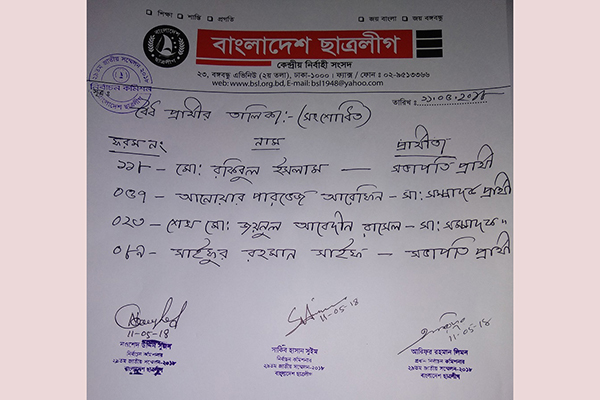 □ শিক্ষা □ শান্তি □ প্রগতি
□ জয় বাংলা □ জয় বঙ্গবন্ধু
বাংলাদেশ
ছাত্রলীগ
বাংলাদেশ ছাত্রলীগ
কেন্দ্রীয় নির্বাহী সংসদ
২৩, বঙ্গবন্ধু এভিনিউ (২য় তলা), ঢাকা-১০০০। ফ্যাক্স / ফোন : ০২-৯৫১৩৩৬৬
web: www.bsl.org.bd, E-mail: bsl1948@yahoo.com
২৯তম জাতীয় সম্মেলন-২০১৮
নির্বাচন কমিশন
বাংলাদেশ ছাত্রলীগ
সূত্র :
তারিখ : ১১.০৫.২০১৮
বৈধ প্রার্থীর তালিকা:- (সংশোধিত)
ফরম নং নাম প্রার্থীতা
১১৮- মো: রকিবুল ইসলাম — সভাপতি প্রার্থী
০৫৭- আনোয়ার পারভেজ আরেফিন - সা: সম্পাদক প্রার্থী
০২৩- শেখ মো: জয়নুল আবেদীন রাসেল - সা: সম্পাদক "
সাইফুর রহমান সাইফ — সভাপতি প্রার্থী
11-05-18
11-05-18
11-05-18
নির্বাচন কমিশনার
২৯তম জাতীয় সম্মেলন-২০১৮
বাংলাদেশ ছাত্রলীগ
সাকিব হাসান সুইম
নির্বাচন কমিশনার
২৯তম জাতীয় সম্মেলন-২০১৮
বাংলাদেশ ছাত্রলীগ
আরিফুর রহমান লিমন
প্রধান নির্বাচন কমিশনার
২৯তম জাতীয় সম্মেলন-২০১৮
বাংলাদেশ ছাত্রলীগ